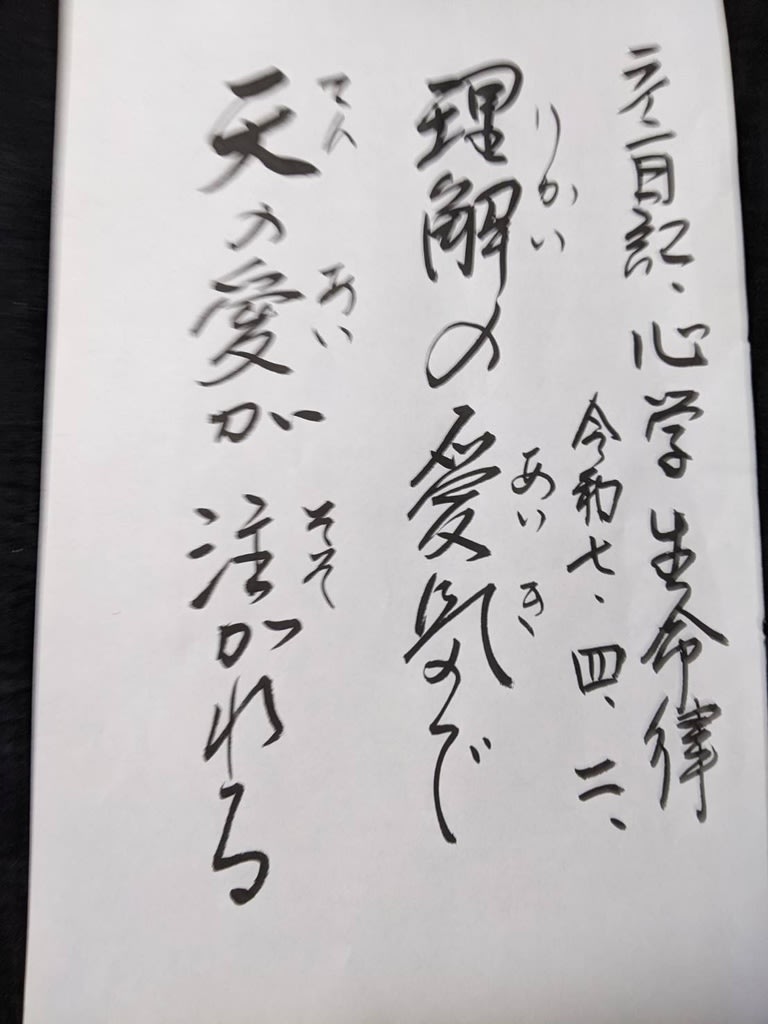 日記、心学生命律
令和七、四、二、
りかい あい き
理解の愛気で
てん あい そそ
天の愛が 注がれる